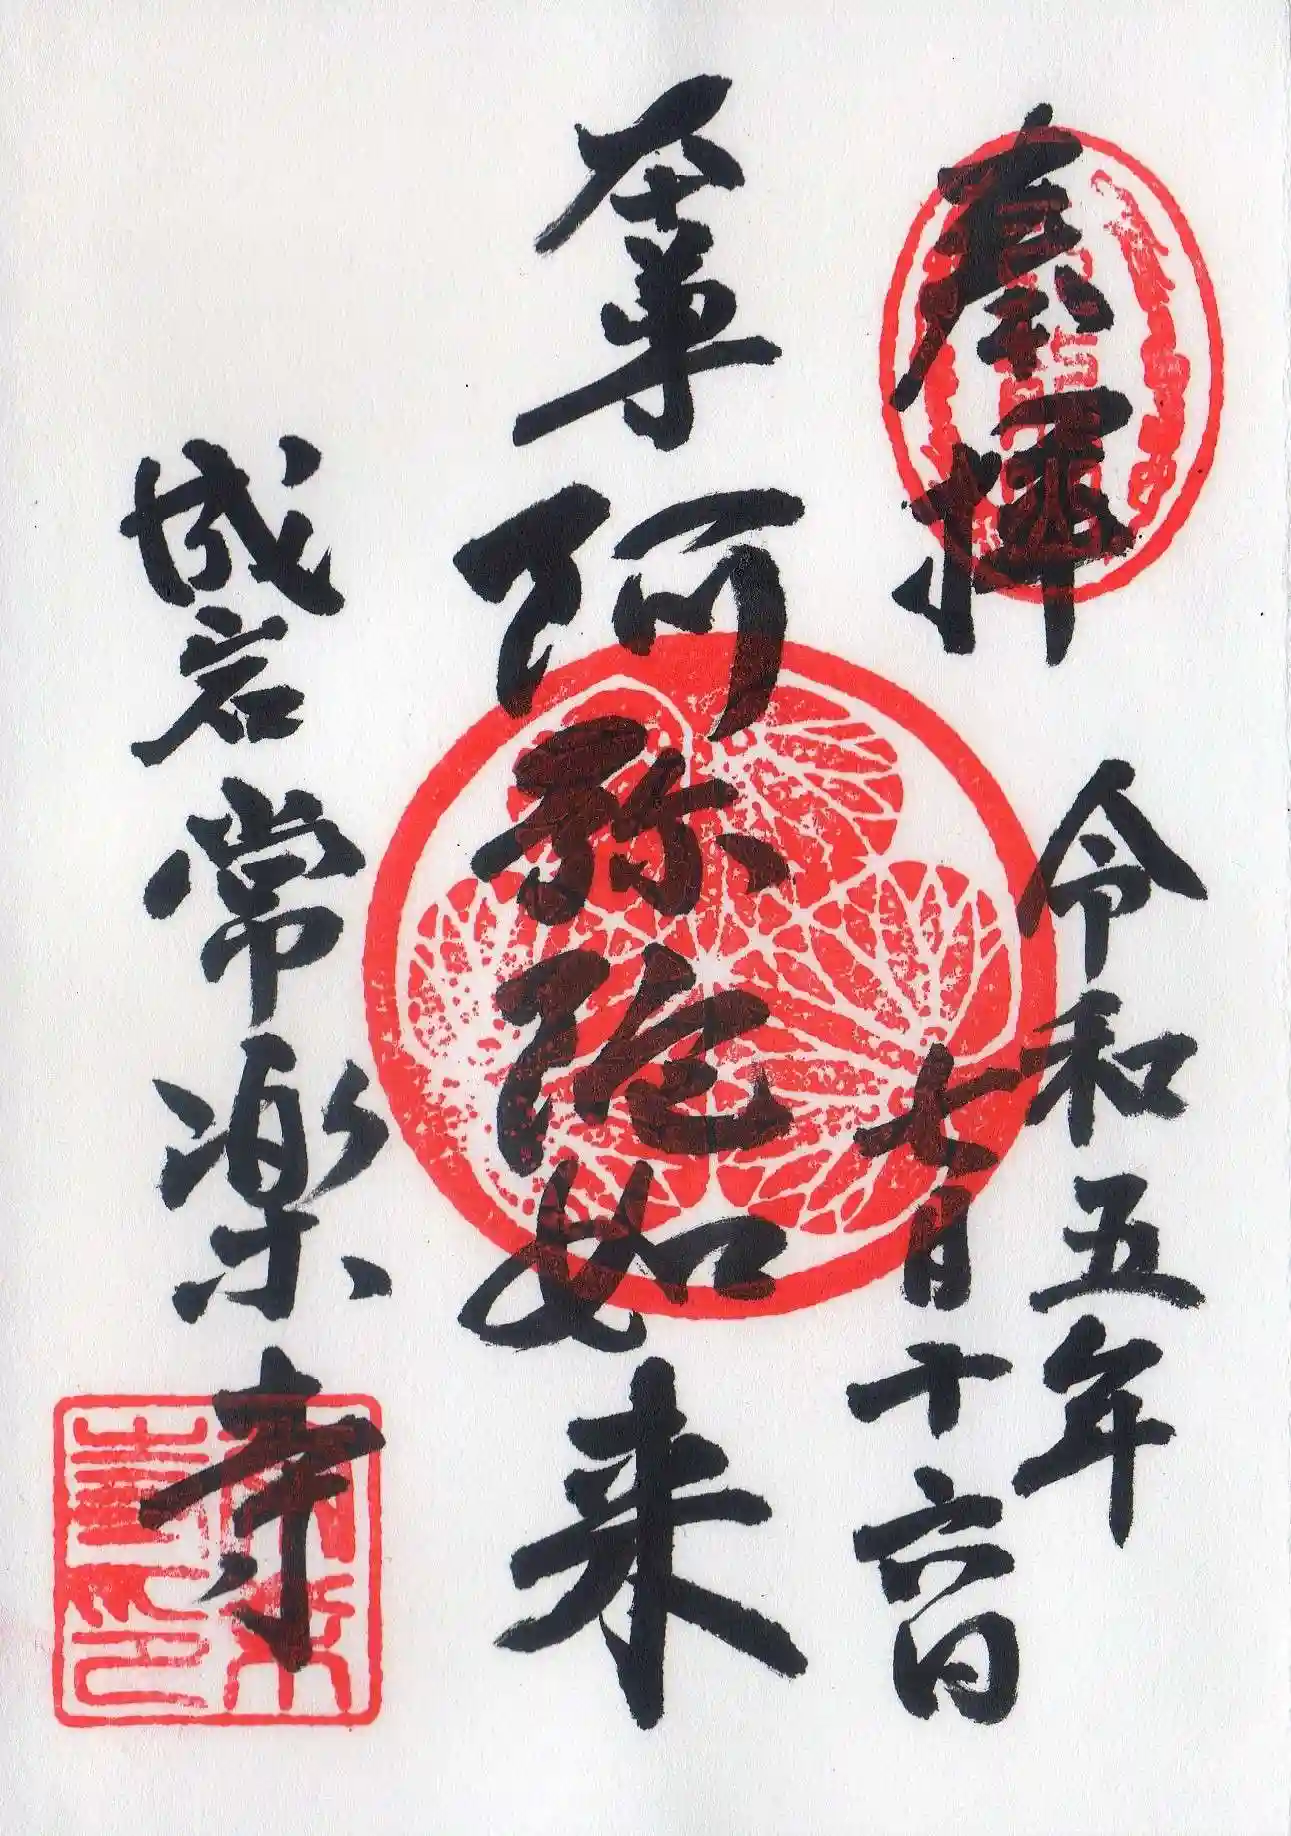 奉拝
令和五年
七月十六日
本尊阿弥陀如来
成岩常楽寺